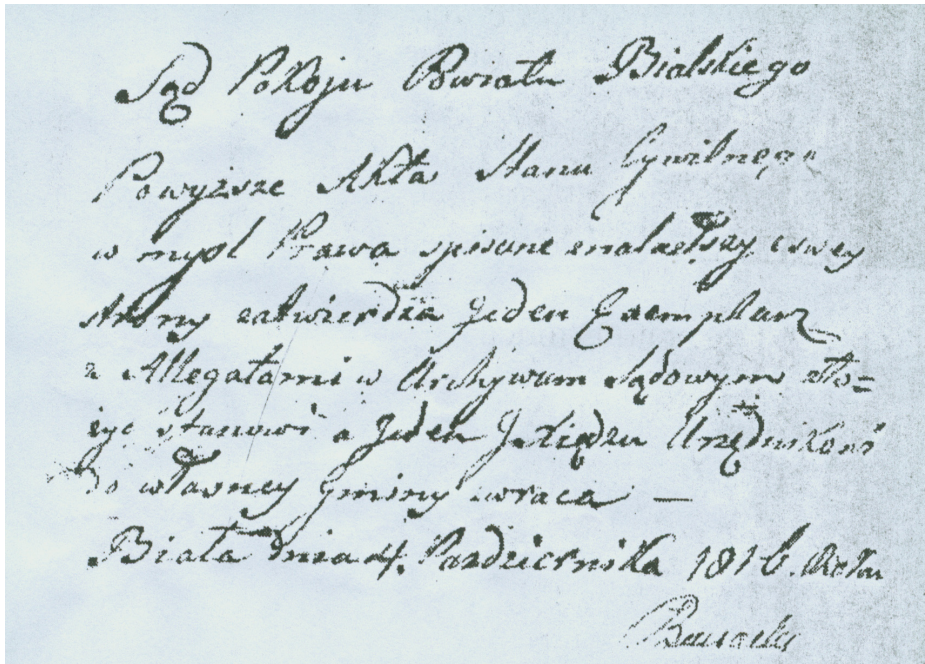 Sąd Pokoju Powiatu Bialskiego
Powyższe Akta Stanu Cywilnego
w mysl Prawa spisane znalazłszy z swey
strony zatwierdza Jeden Exemplarz
z Allegatami w Archywum Sądowym zło=
zyc stanowi a Jeden J. Xiędzu Urzędnikowi
do własney gminy zwraca —
Biała dnia 4. Pazdziernika 1816. Roku